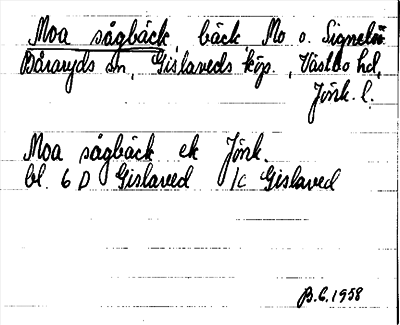 Moa sågbäck, bäck, Mo o.
Båraryds sn, Gislaveds köp., Västbo hd,
Jönk. l.
Moa sågbäck ek Jönk.
bl. 6 D Gislaved 1c Gislaved
B.G. 1958